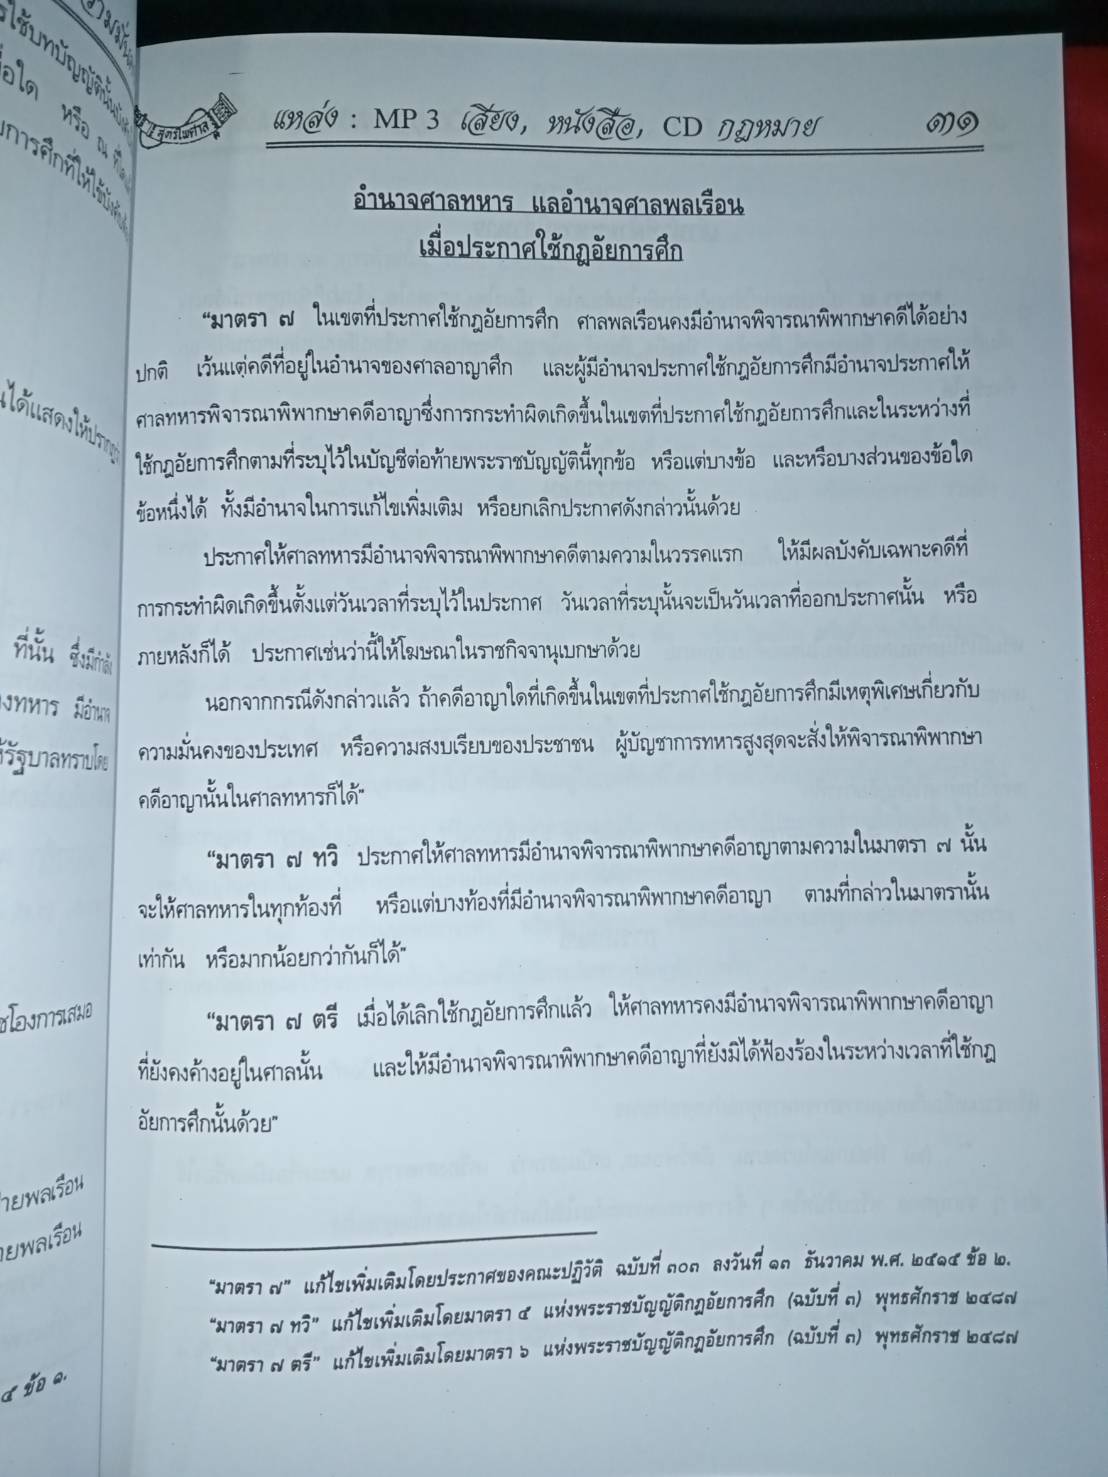 สูตรไพศาล
แหล่ง : MP 3 เสียง, หนังสือ, CD กฎหมาย ๓๑
อำนาจศาลทหาร แลอำนาจศาลพลเรือน
เมื่อประกาศใช้กฎอัยการศึก
“มาตรา ๗ ในเขตที่ประกาศใช้กฎอัยการศึก ศาลพลเรือนคงมีอำนาจพิจารณาพิพากษาคดีได้อย่าง
ปกติ เว้นแต่คดีที่อยู่ในอำนาจของศาลอาญาศึก และผู้มีอำนาจประกาศใช้กฎอัยการศึกมีอำนาจประกาศให้
ศาลทหารพิจารณาพิพากษาคดีอาญาซึ่งการกระทำผิดเกิดขึ้นในเขตที่ประกาศใช้กฎอัยการศึกและในระหว่างที่
ใช้กฎอัยการศึกตามที่ระบุไว้ในบัญชีต่อท้ายพระราชบัญญัตินี้ทุกข้อ หรือแต่บางข้อ และหรือบางส่วนของข้อใด
ข้อหนึ่งได้ ทั้งมีอำนาจในการแก้ไขเพิ่มเติม หรือยกเลิกประกาศดังกล่าวนั้นด้วย
ประกาศให้ศาลทหารมีอำนาจพิจารณาพิพากษาคดีตามความในวรรคแรก ให้มีผลบังคับเฉพาะคดีที่
การกระทำผิดเกิดขึ้นตั้งแต่วันเวลาที่ระบุไว้ในประกาศ วันเวลาที่ระบุนั้นจะเป็นวันเวลาที่ออกประกาศนั้น หรือ
ภายหลังก็ได้ ประกาศเช่นว่านี้ให้โฆษณาในราชกิจจานุเบกษาด้วย
นอกจากกรณีดังกล่าวแล้ว ถ้าคดีอาญาใดที่เกิดขึ้นในเขตที่ประกาศใช้กฎอัยการศึกมีเหตุพิเศษเกี่ยวกับ
ความมั่นคงของประเทศ หรือความสงบเรียบของประชาชน ผู้บัญชาการทหารสูงสุดจะสั่งให้พิจารณาพิพากษา
คดีอาญานั้นในศาลทหารก็ได้”
“มาตรา ๗ ทวิ ประกาศให้ศาลทหารมีอำนาจพิจารณาพิพากษาคดีอาญาตามความในมาตรา ๗ นั้น
จะให้ศาลทหารในทุกท้องที่ หรือแต่บางท้องที่มีอำนาจพิจารณาพิพากษาคดีอาญา ตามที่กล่าวในมาตรานั้น
เท่ากัน หรือมากน้อยกว่ากันก็ได้”
“มาตรา ๗ ตรี เมื่อได้เลิกใช้กฎอัยการศึกแล้ว ให้ศาลทหารคงมีอำนาจพิจารณาพิพากษาคดีอาญา
ที่ยังคงค้างอยู่ในศาลนั้น และให้มีอำนาจพิจารณาพิพากษาคดีอาญาที่ยังมิได้ฟ้องร้องในระหว่างเวลาที่ใช้กฎ
อัยการศึกนั้นด้วย”
“มาตรา ๗” แก้ไขเพิ่มเติมโดยประกาศของคณะปฏิวัติ ฉบับที่ ๓๐๓ ลงวันที่ ๑๓ ธันวาคม พ.ศ. ๒๕๑๕ ข้อ ๒.
“มาตรา ๗ ทวิ” แก้ไขเพิ่มเติมโดยมาตรา ๕ แห่งพระราชบัญญัติกฎอัยการศึก (ฉบับที่ ๓) พุทธศักราช ๒๔๘๗
“มาตรา ๗ ตรี” แก้ไขเพิ่มเติมโดยมาตรา ๖ แห่งพระราชบัญญัติกฎอัยการศึก (ฉบับที่ ๓) พุทธศักราช ๒๔๘๗
หรือ ณ
ที่นั้น ซึ่งมีกำลัง
ทหาร มีอำนาจ
รัฐบาลทราบโดย
โองการเสมอ
พลเรือน
พลเรือน
๕ ข้อ ๑.